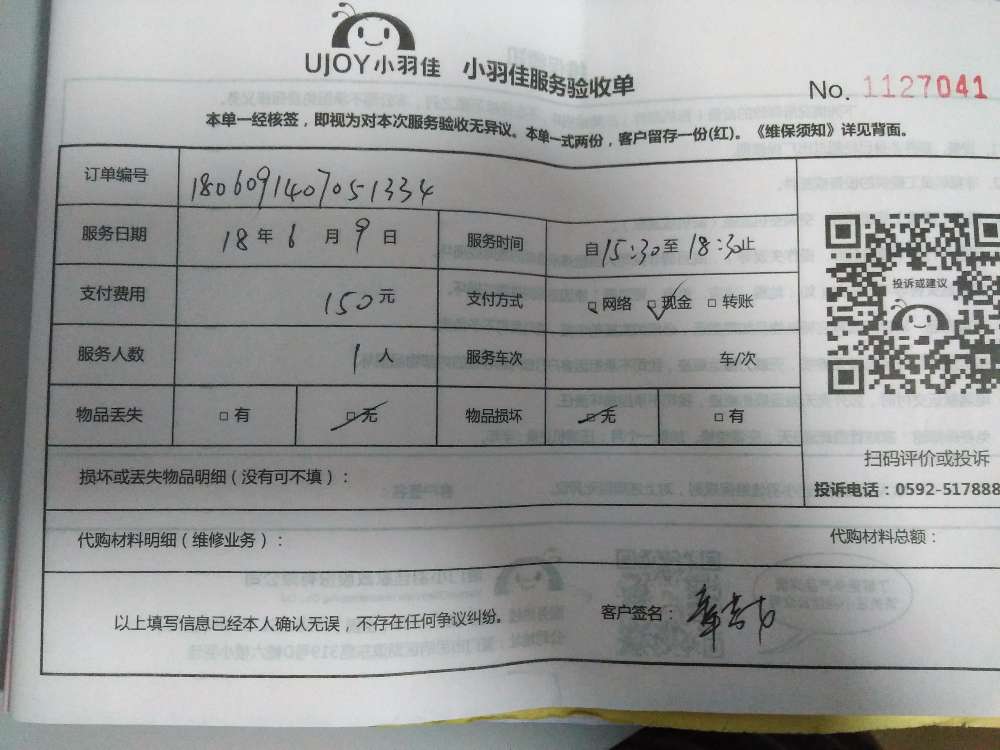 UJOY小羽佳 小羽佳服务验收单
No. 1127041
本单一经核签，即视为对本次服务验收无异议。本单一式两份，客户留存一份(红)。《维保须知》详见背面。
订单编号 1806091407051334
服务日期 18年6月9日 服务时间 自15:30至18:30止
投诉或建议
支付费用 150元 支付方式 □网络 □现金 □转账
服务人数 1人 服务车次 车/次
物品丢失 □有 □无 物品损坏 □无 □有
扫码评价或投诉
损坏或丢失物品明细（没有可不填）：
投诉电话：0592-517888
代购材料明细（维修业务）： 代购材料总额：
以上填写信息已经本人确认无误，不存在任何争议纠纷。 客户签名：